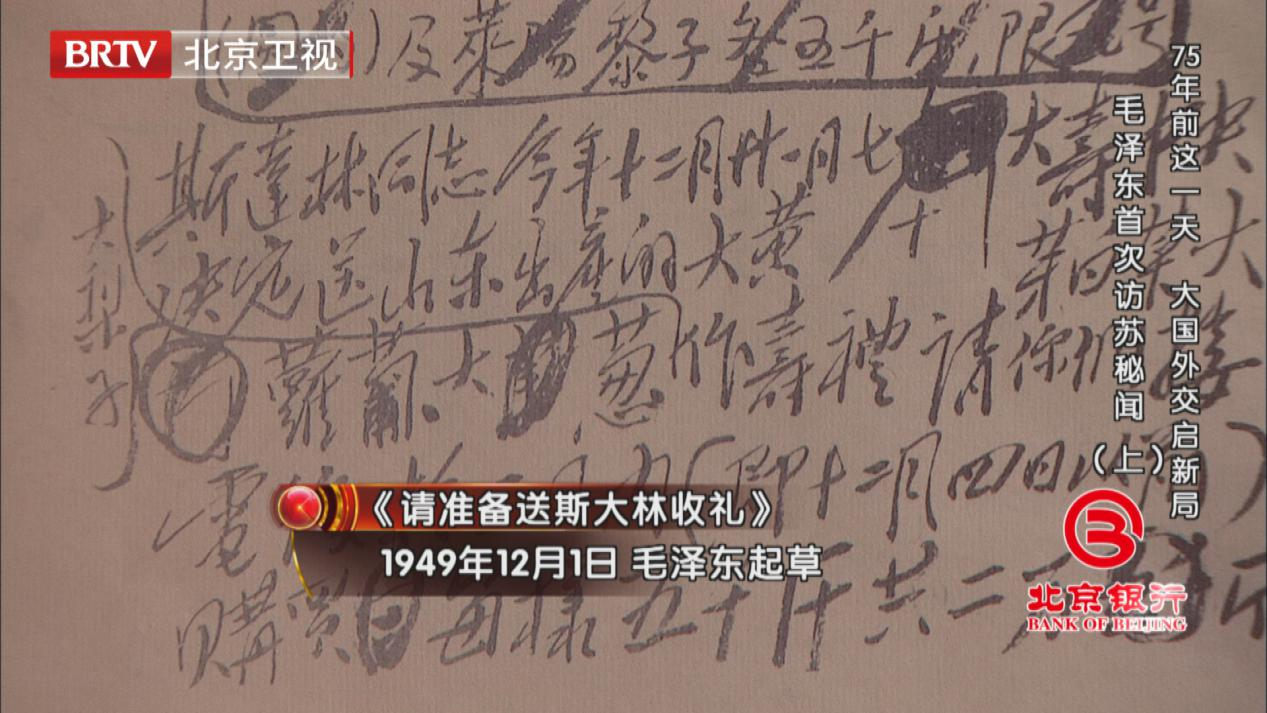 BRTV 北京卫视
及莱阳黎子各五千斤,限
斯達林同志今年十二月廿一日七十大壽
决定送山東出產的大黄芽白菜大
蘿蔔大葱作壽禮请你們
電
(即十二月四日
購買每樣五千斤共二
斤
大梨子
75年前这一天 大国外交启新局
毛泽东首次访苏秘闻(上)
《请准备送斯大林收礼》
1949年12月1日 毛泽东起草
北京银行
BANK OF BEIJING